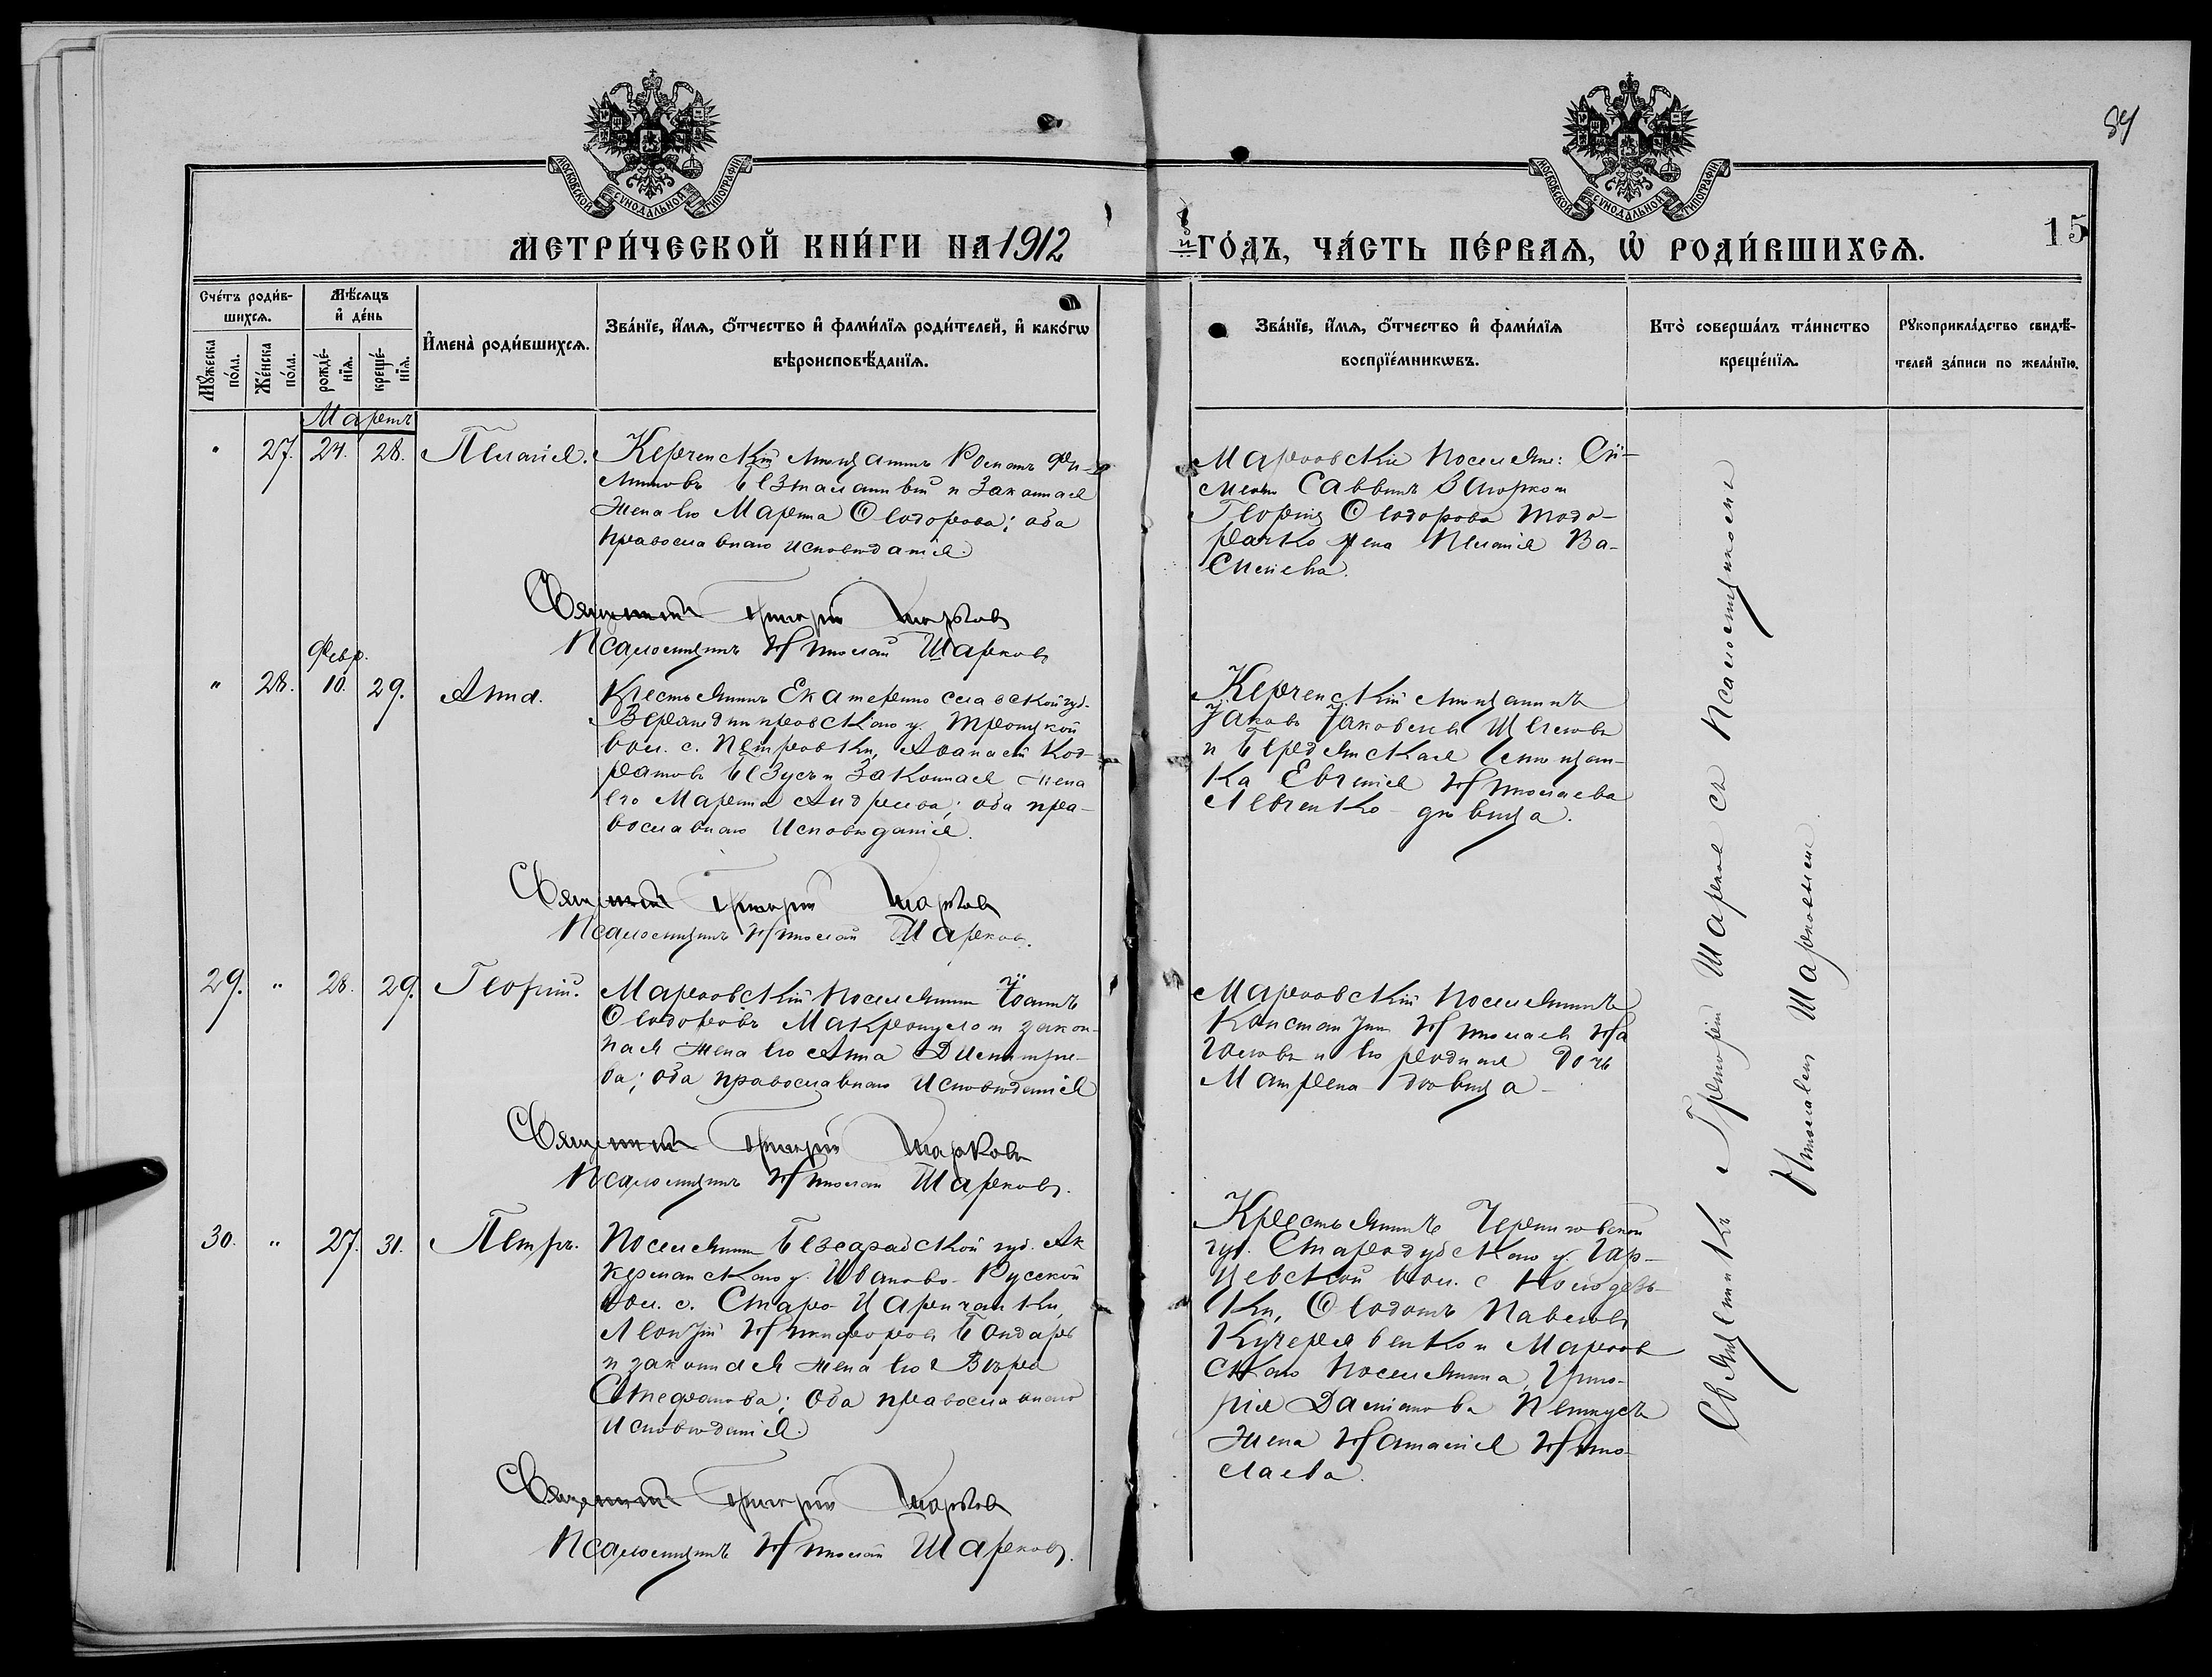 84
МОСКОВСКОЙ СѴНОДАЛЬНОЙ ТИПОГРАФІИ
МОСКОВСКОЙ СѴНОДАЛЬНОЙ ТИПОГРАФІИ
15
МЕТРИ́ЧЕСКОЙ КНИ́ГИ НА 1912
й ГО́ДЪ, ЧА́СТЬ ПЕ́РВАѦ, Ѽ РОДИ́ВШИХСѦ.
Сче́тъ роди́вшихсѧ.
Мꙋ́жеска по́ла.
Же́нска по́ла.
Мѣ́сѧцъ и҆ де́нь
рожде́нїѧ.
креще́нїѧ.
И҆мена̀ роди́вшихсѧ.
Зва́нїе, и҆́мѧ, ѻ҆́тчество и҆ фами́лїѧ роди́телей, и҆ како́гѡ
вѣроисповѣ́данїѧ.
Зва́нїе, и҆́мѧ, ѻ҆́тчество и҆ фами́лїѧ
воспрїе́мникѡвъ.
Кто̀ соверша́лъ та́инство
креще́нїѧ.
Рꙋкоприкла́дство свидѣ́-
телей за́писи по жела́нїю.
Мартъ
" 27. 24. 28. Пелагія.
Керченскій мѣщанинъ Романъ Фи-
липповъ Безталанный и законная
жена его Марѳа Ѳеодорова; оба
православнаго исповѣданія.
Священникъ Григорій Шарковъ
Псаломщикъ Николай Шарковъ
Марѳовскіе поселяне: Си-
меонъ Саввинъ и
Георгія Ѳеодорова Тодо-
жена Пелагія Ва-
сильева.
Февр.
" 28. 10. 29. Анна.
Крестьянинъ Екатеринославской губ.
Верхнеднипровскаго у. Троицкой
вол. с. Петровки, Аѳанасій Код-
ратовъ Безусъ и законная жена
его Марѳа Андреева; оба пра-
вославнаго исповѣданія.
Священникъ Григорій Шарковъ
Псаломщикъ Николай Шарковъ.
Керченскій мѣщанинъ
Іаковъ Іаковлевъ Щегловъ
и Бердянская мѣщан-
ка Евгенія Николаева
Левченко - дѣвица.
29. " 28. 29. Георгій.
Марѳовскій поселянинъ Іоаннъ
Ѳеодоровъ Макропуло и закон-
ная жена его Анна Димитріе-
ва; оба православнаго исповѣданія
Священникъ Григорій Шарковъ
Псаломщикъ Николай Шарковъ.
Марѳовскій поселянинъ
Константинъ Николаевъ На
и его родная дочь
Матрена дѣвица -
30. " 27. 31. Петръ.
Поселянинъ Бессарабской губ. Ак
керманскаго у. Ивановo-Русской
вол. с. Старо-Царичанки,
Леонтій Никифоровъ Бондарь
и законная жена его Вѣра
Стефанова; оба православнаго
исповѣданія.
Священникъ Григорій Шарковъ
Псаломщикъ Николай Шарковъ.
Крестьянинъ Черниговской
губ. Стародубскаго у.
вол. с.
Ѳеодотъ Павловъ
Кучерявенко и Марѳов
скаго поселянина Григо-
рія Даміанова
жена Наталія Нико-
лаева.
Священникъ Григорій Шарковъ съ псаломщикомъ
Николаемъ Шарковымъ.